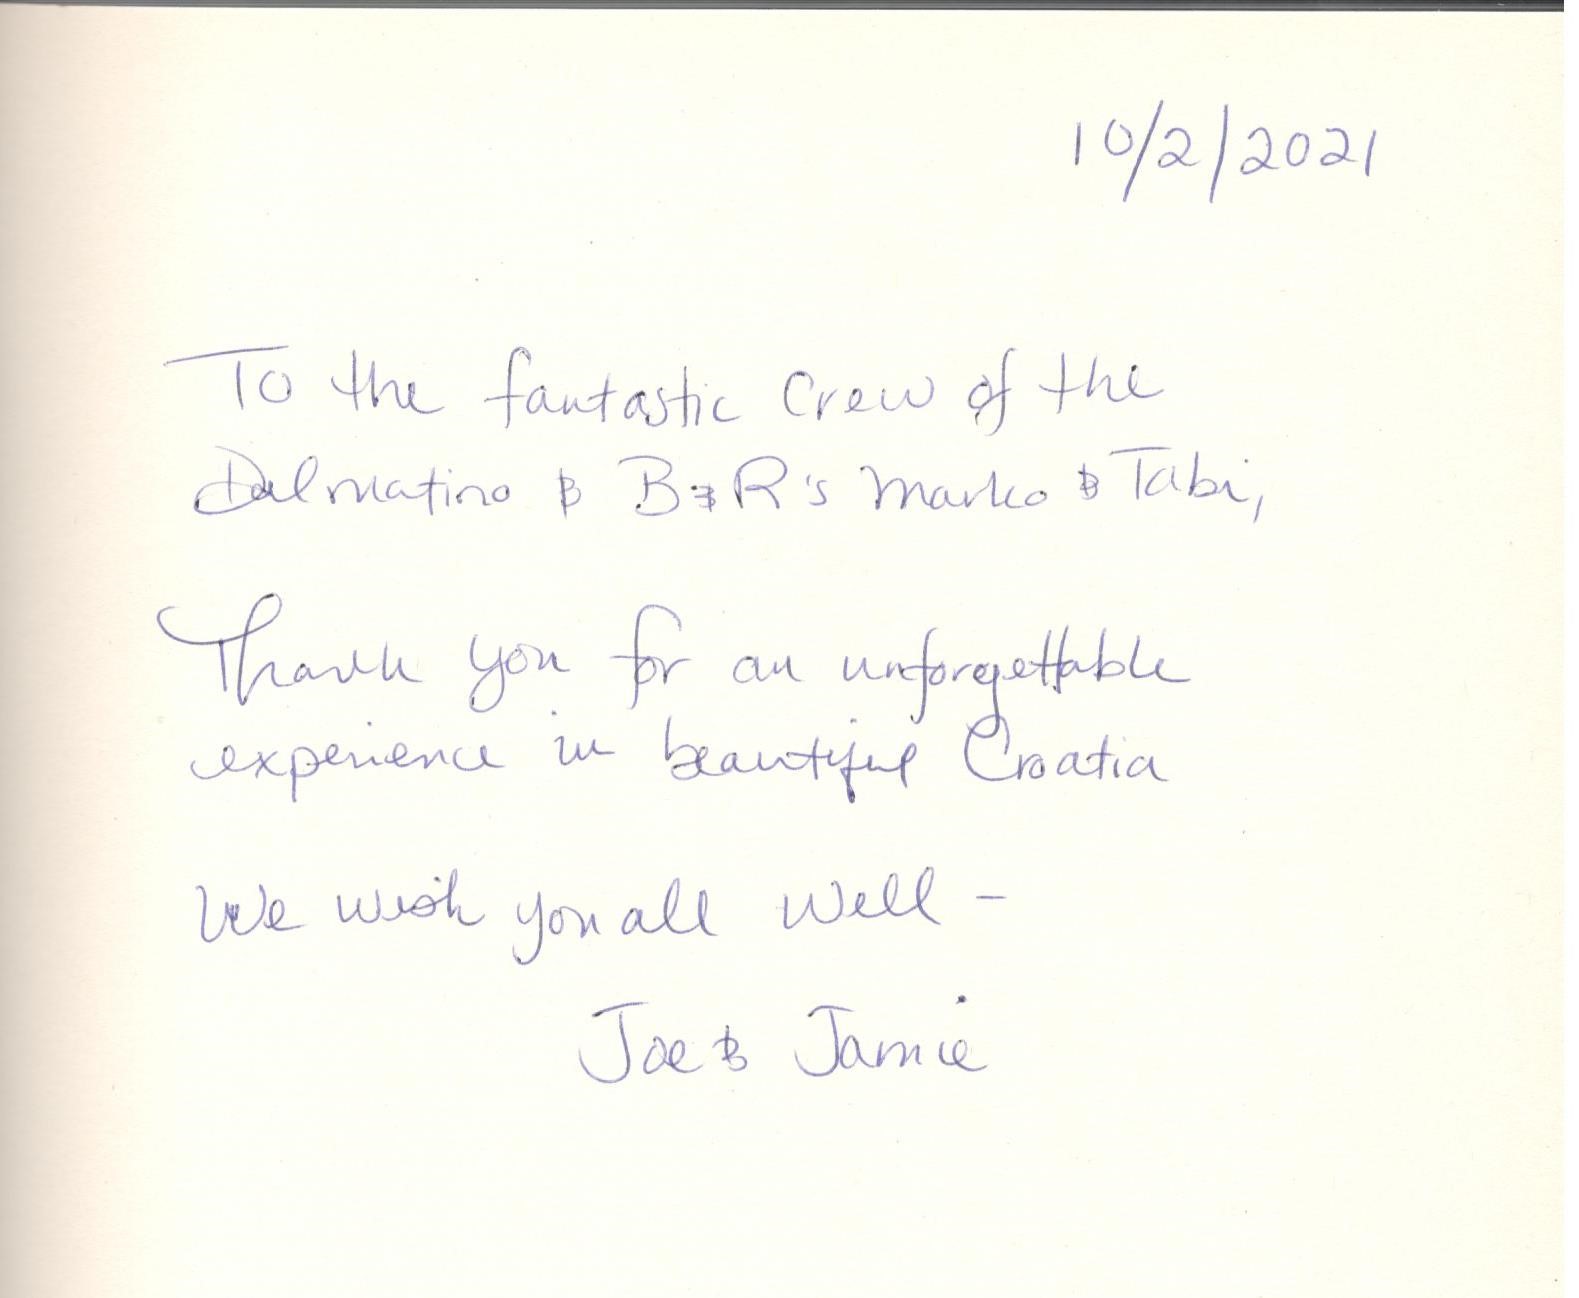 10/2/2021
To the fantastic crew of the
Dalmatino & B&R's Marko & Tabi,
Thank you for an unforgettable
experience in beautiful Croatia
We wish you all well -
Joe & Jamie